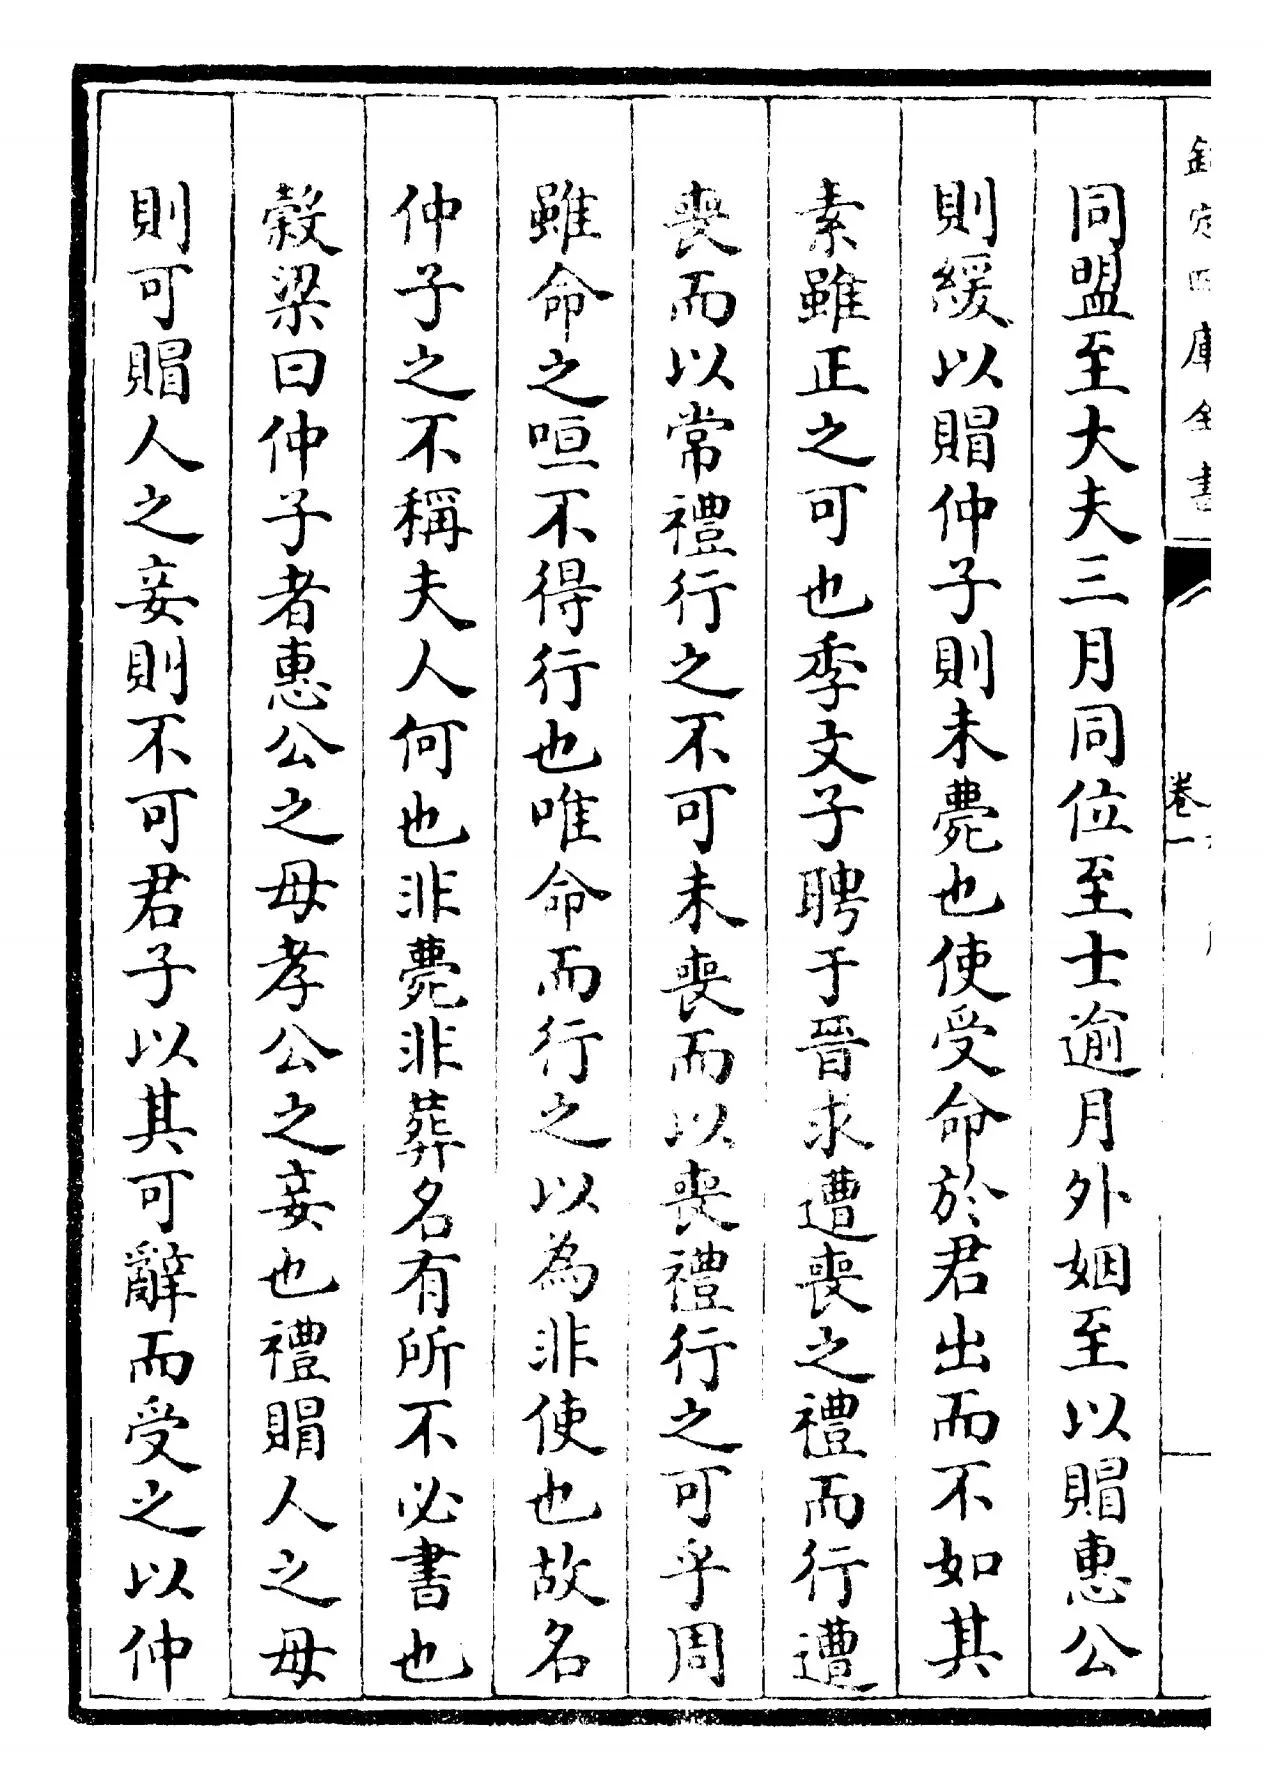 欽定四庫全書
卷一
同盟至大夫三月同位至士逾月外姻至以賵惠公
則緩以賵仲子則未薨也使受命於君出而不如其
素雖正之可也季文子聘于晉求遭喪之禮而行遭
喪而以常禮行之不可未喪而以喪禮行之可乎周
雖命之咺不得行也唯命而行之以為非使也故名
仲子之不稱夫人何也非薨非葬名有所不必書也
榖梁曰仲子者惠公之母孝公之妾也禮賵人之母
則可賵人之妾則不可君子以其可辭而受之以仲